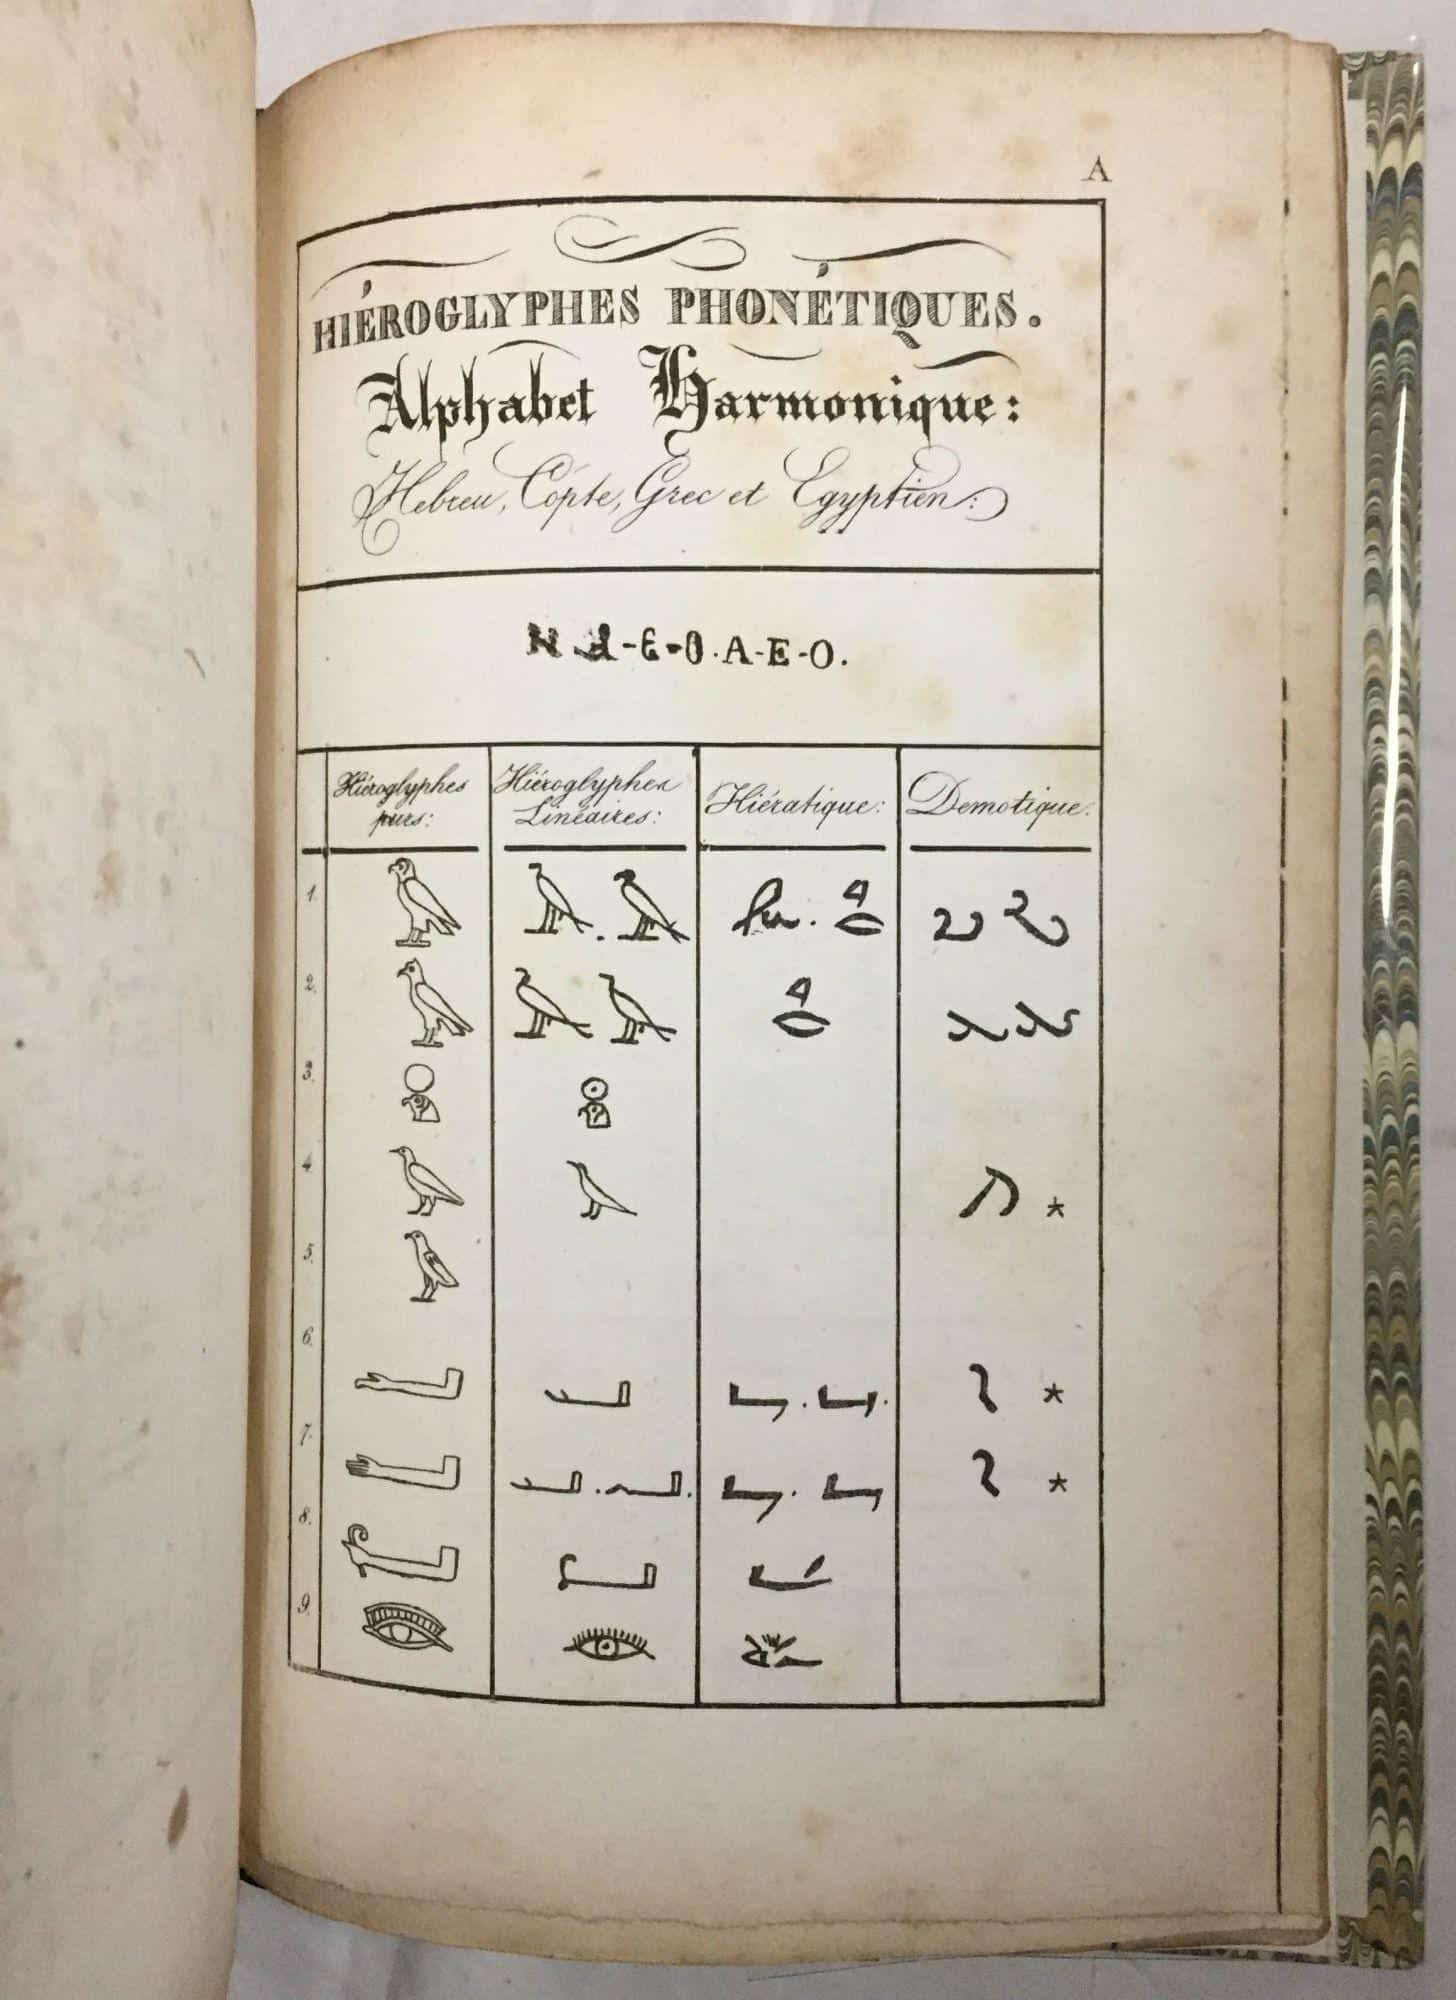 A
HIÉROGLYPHES PHONÉTIQUES.
Alphabet Harmonique:
Hebreu, Copte, Grec et Egyptien:
א ⲁ-ⲉ-ⲟ. A-E-O.
Hiéroglyphes purs:
Hiéroglyphes Linéaires:
Hiératique:
Demotique.
1.
2.
3.
4.
*
5.
6.
*
7.
*
8.
9.